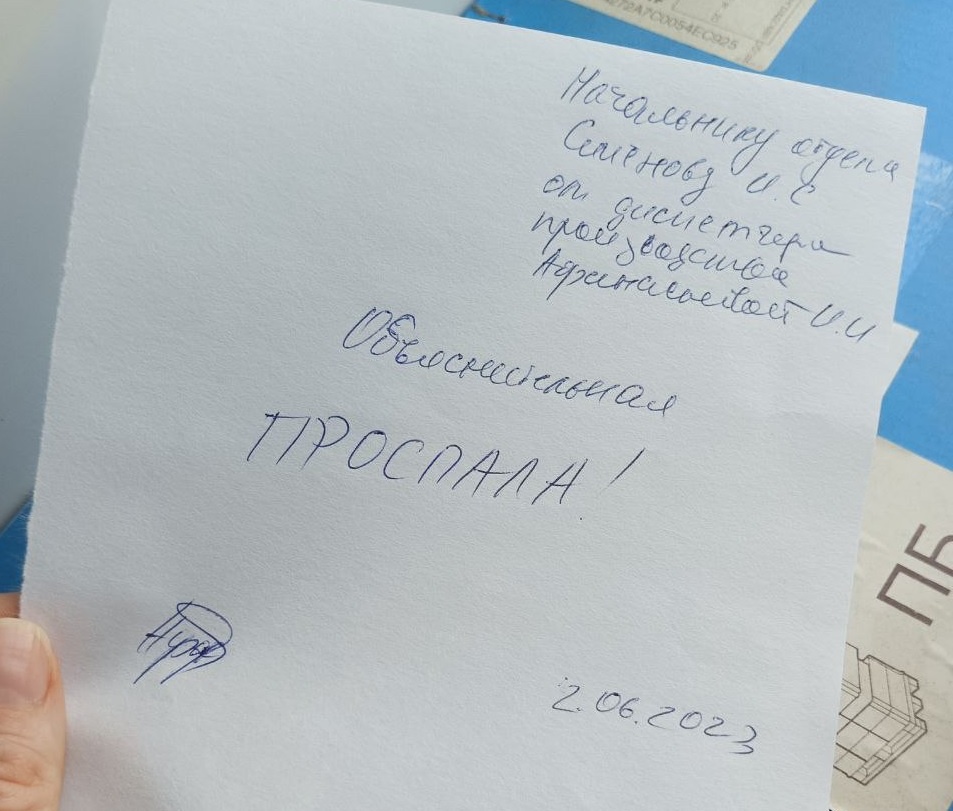 4272A7C0054EC925
Начальнику отдела
Семенову И.С
от диспетчера
производства
Афанасьевой И.И
Объяснительная
ПРОСПАЛА!
ПБ
2.06.2023